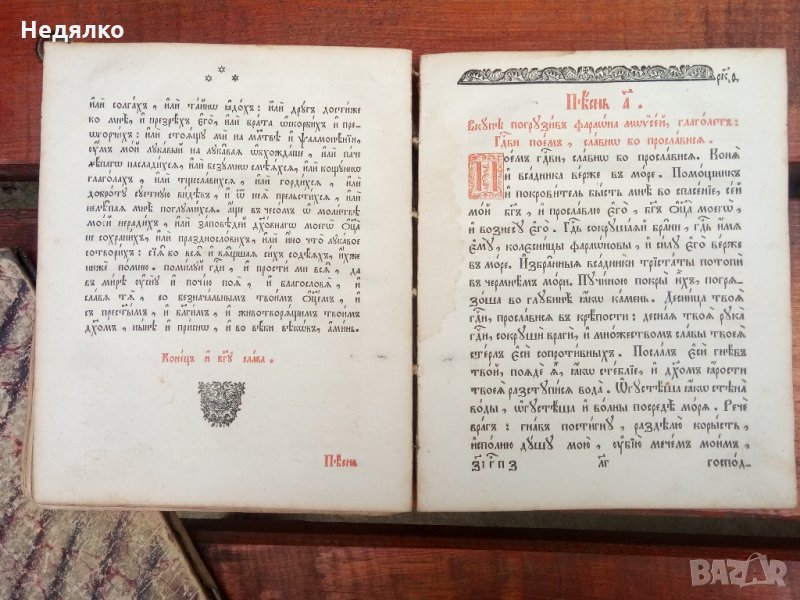 Недялко
и҆лѝ солга́хъ , и҆лѝ та́йнѡ ꙗ҆до́хъ : и҆лѝ дрꙋ́гъ дости́же
ко мнѣ̀ , и҆ презрѣ́хъ є҆го̀ , и҆лѝ бра́та ѡ҆скорби́хъ и҆ пре=
ѡ҆горчи́хъ : и҆лѝ стоѧ́щꙋ мѝ на мл҃твѣ и҆ ѱалмопѣ́нїи ,
ᲂу҆́мъ мо́й лꙋка́вый на лꙋка́ваѧ ѡ҆бхожда́ше , и҆лѝ па́че
лѣ́пагѡ наслади́хсѧ , и҆лѝ безꙋ́мнѡ смѣѧ́хсѧ , и҆лѝ кощꙋ́ннѡ
глаго́лахъ , и҆лѝ тщесла́вихсѧ , и҆лѝ горди́хсѧ , и҆лѝ
добротꙋ̀ сꙋ́етнꙋю ви́дѣвъ , и҆ ѿ неѧ̀ прельсти́хсѧ , и҆лѝ
нелѣ́паѧ мнѣ̀ поглꙋми́хсѧ . а҆́ще въ че́мъ ѡ҆ моли́твѣ
мое́й неради́хъ , и҆лѝ за́повѣдей дꙋхо́внагѡ моегѡ̀ ѻ҆ц҃а̀
не сохрани́хъ , и҆лѝ праздносло́вихъ , и҆лѝ и҆́но что̀ лꙋка́вое
сотвори́хъ : сїѧ̑ во всѧ̑ и҆ вѧ̑щшаѧ си́хъ содѣ́ѧхъ , и҆́хже
нижѐ по́мню . поми́лꙋй гдⷭ҇и , и҆ простѝ мѝ всѧ̑ , да
въ ми́рѣ ᲂу҆снꙋ̀ и҆ почі́ю поѧ̀ , и҆ благословѧ̀ , и҆
сла́вѧ тѧ̀ , со безнача́льнымъ твои́мъ ѻ҆ц҃е́мъ , и҆
съ прест҃ы́мъ , и҆ бл҃ги́мъ , и҆ животворѧ́щимъ твои́мъ
дх҃омъ , ны́нѣ и҆ при́снѡ , и҆ во вѣ́ки вѣкѡ́въ , а҆ми́нь .
Коне́цъ и҆ бг҃ꙋ сла́ва .
П+ѣ́снь
Пѣ́снь а҃ .
Вкꙋ́пѣ погрꙋзи́въ фараѡ́на мѡѷсе́й , глаго́летъ :
Гдⷭ҇ви пое́мъ , сла́внѡ бо просла́висѧ .
Пое́мъ гдⷭ҇ви , сла́внѡ бо просла́висѧ . Конѧ̀
и҆ вса́дника ве́рже въ мо́ре . Помо́щникъ
и҆ покрови́тель бы́сть мнѣ̀ во спⷭ҇енїе , се́й
мо́й бг҃ъ , и҆ просла́влю є҆го̀ , бг҃ъ ѻ҆ц҃а̀ моегѡ̀ ,
и҆ вознесꙋ̀ є҆го̀ . Гдⷭ҇ь сокрꙋша́ѧй бра̑ни , гдⷭ҇ь и҆́мѧ
є҆мꙋ̀ , колесни̑цы фараѡ́новы , и҆ си́лꙋ є҆гѡ̀ ве́рже
въ мо́ре . И҆збра̑нныѧ вса́дники трїста́ты потопѝ
въ чермнѣ́мъ мо́ри . Пꙋчи́ною покры̀ и҆̀хъ , погрѧ=
зо́ша во глꙋбинѣ̀ ꙗ҆́кѡ ка́мень . Десни́ца твоѧ̀
гдⷭ҇и , просла́висѧ въ крѣ́пости : десна́ѧ твоѧ̀ рꙋка̀
гдⷭ҇и , сокрꙋшѝ врагѝ , и҆ мно́жествомъ сла́вы твоеѧ̀
сте́рлъ є҆сѝ сопроти́вныхъ . Посла́лъ є҆сѝ гнѣ́въ
тво́й , поѧдѐ ѧ҆̀ , ꙗ҆́кѡ сте́блїе , и҆ дꙋ́хомъ ꙗ҆́рости
твоеѧ̀ разстꙋпи́сѧ вода̀ . Ѡ҆гꙋстѣ́ша ꙗ҆́кѡ стѣна̀
во́ды , ѡ҆гꙋстѣ́ша и҆ во́лны посредѣ̀ мо́рѧ . Речѐ
вра́гъ : гна́въ пости́гнꙋ , раздѣлю̀ коры́сть ,
и҆спо́лню дꙋ́шꙋ мою̀ , ᲂу҆бїю̀ мече́мъ мои́мъ ,
госпо́д=
BAZAR